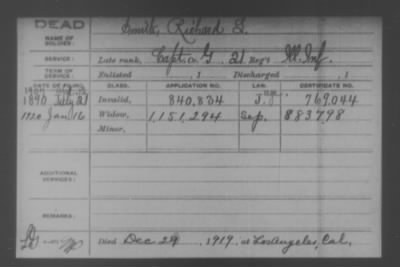 DEAD
NAME OF SOLDIER: Smith, Richard S.
SERVICE: Late rank, Capt. Co. G, 21 Reg't Ill. Inf.
TERM OF SERVICE: Enlisted , 1 Discharged , 1
DATE OF FILING. CLASS. APPLICATION NO. LAW. CERTIFICATE NO.
1890 July 21 Invalid, 840,834 769,044
1920 Jan 16 Widow, 1,151,294 Sep. 883798
Minor,
ADDITIONAL SERVICES:
REMARKS:
Died Dec 29, 1919, at Los Angeles, Cal.